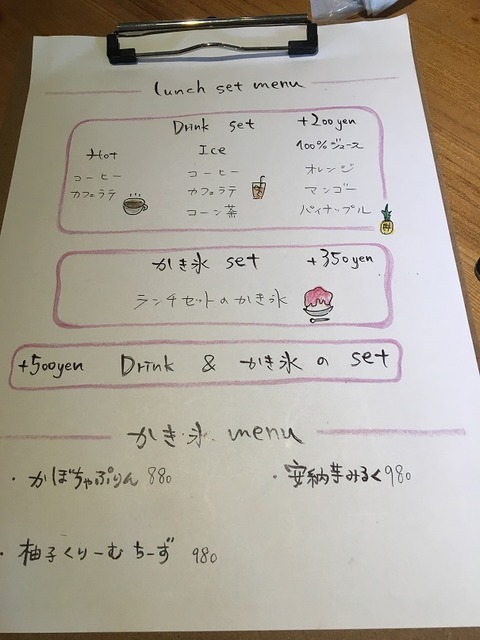 lunch set menu
Drink set +200yen
Hot
コーヒー
カフェラテ
Ice
コーヒー
カフェラテ
コーン茶
100%ジュース
オレンジ
マンゴー
パイナップル
かき氷 set +350yen
ランチセットのかき氷
+500yen Drink & かき氷 の set
かき氷 menu
・かぼちゃぷりん 880
・安納芋みるく 980
・柚子くりーむちーず 980